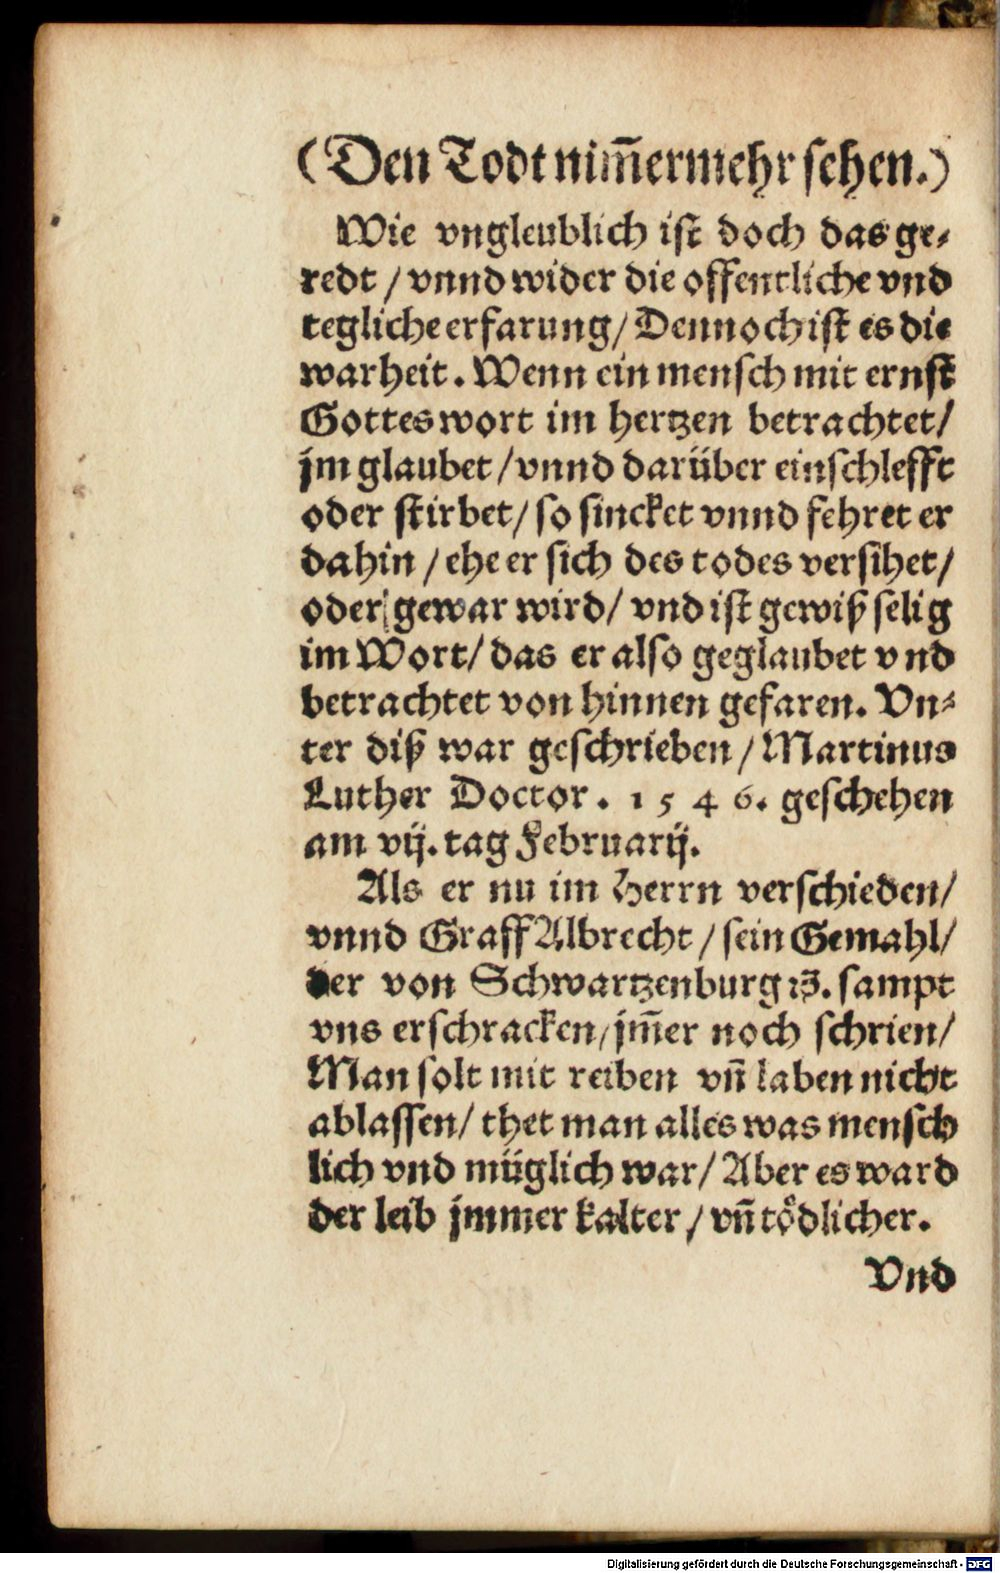 (Den Todt nim̄ermehr sehen.)
Wie vngleublich ist doch das ge-
redt / vnnd wider die offentliche vnd
tegliche erfarung / Dennoch ist es die
warheit. Wenn ein mensch mit ernst
Gottes wort im hertzen betrachtet /
jm glaubet / vnnd darüber einschlefft
oder stirbet / so sincket vnnd fehret er
dahin / ehe er sich des todes versihet /
oder gewar wird / vnd ist gewiß selig
im Wort / das er also geglaubet vnd
betrachtet von hinnen gefaren. Vn-
ter diß war geschrieben / Martinus
Luther Doctor. 1546. geschehen
am vij. tag Februarij.
Als er nu im Herrn verschieden /
vnnd Graff Albrecht / sein Gemahl /
der von Schwartzenburg ꝛc. sampt
vns erschracken / jm̄er noch schrien /
Man solt mit reiben vn̄ laben nicht
ablassen / thet man alles was mensch
lich vnd müglich war / Aber es ward
der leib jmmer kalter / vn̄ tödlicher.
Vnd
Digitalisierung gefördert durch die Deutsche Forschungsgemeinschaft - DFG